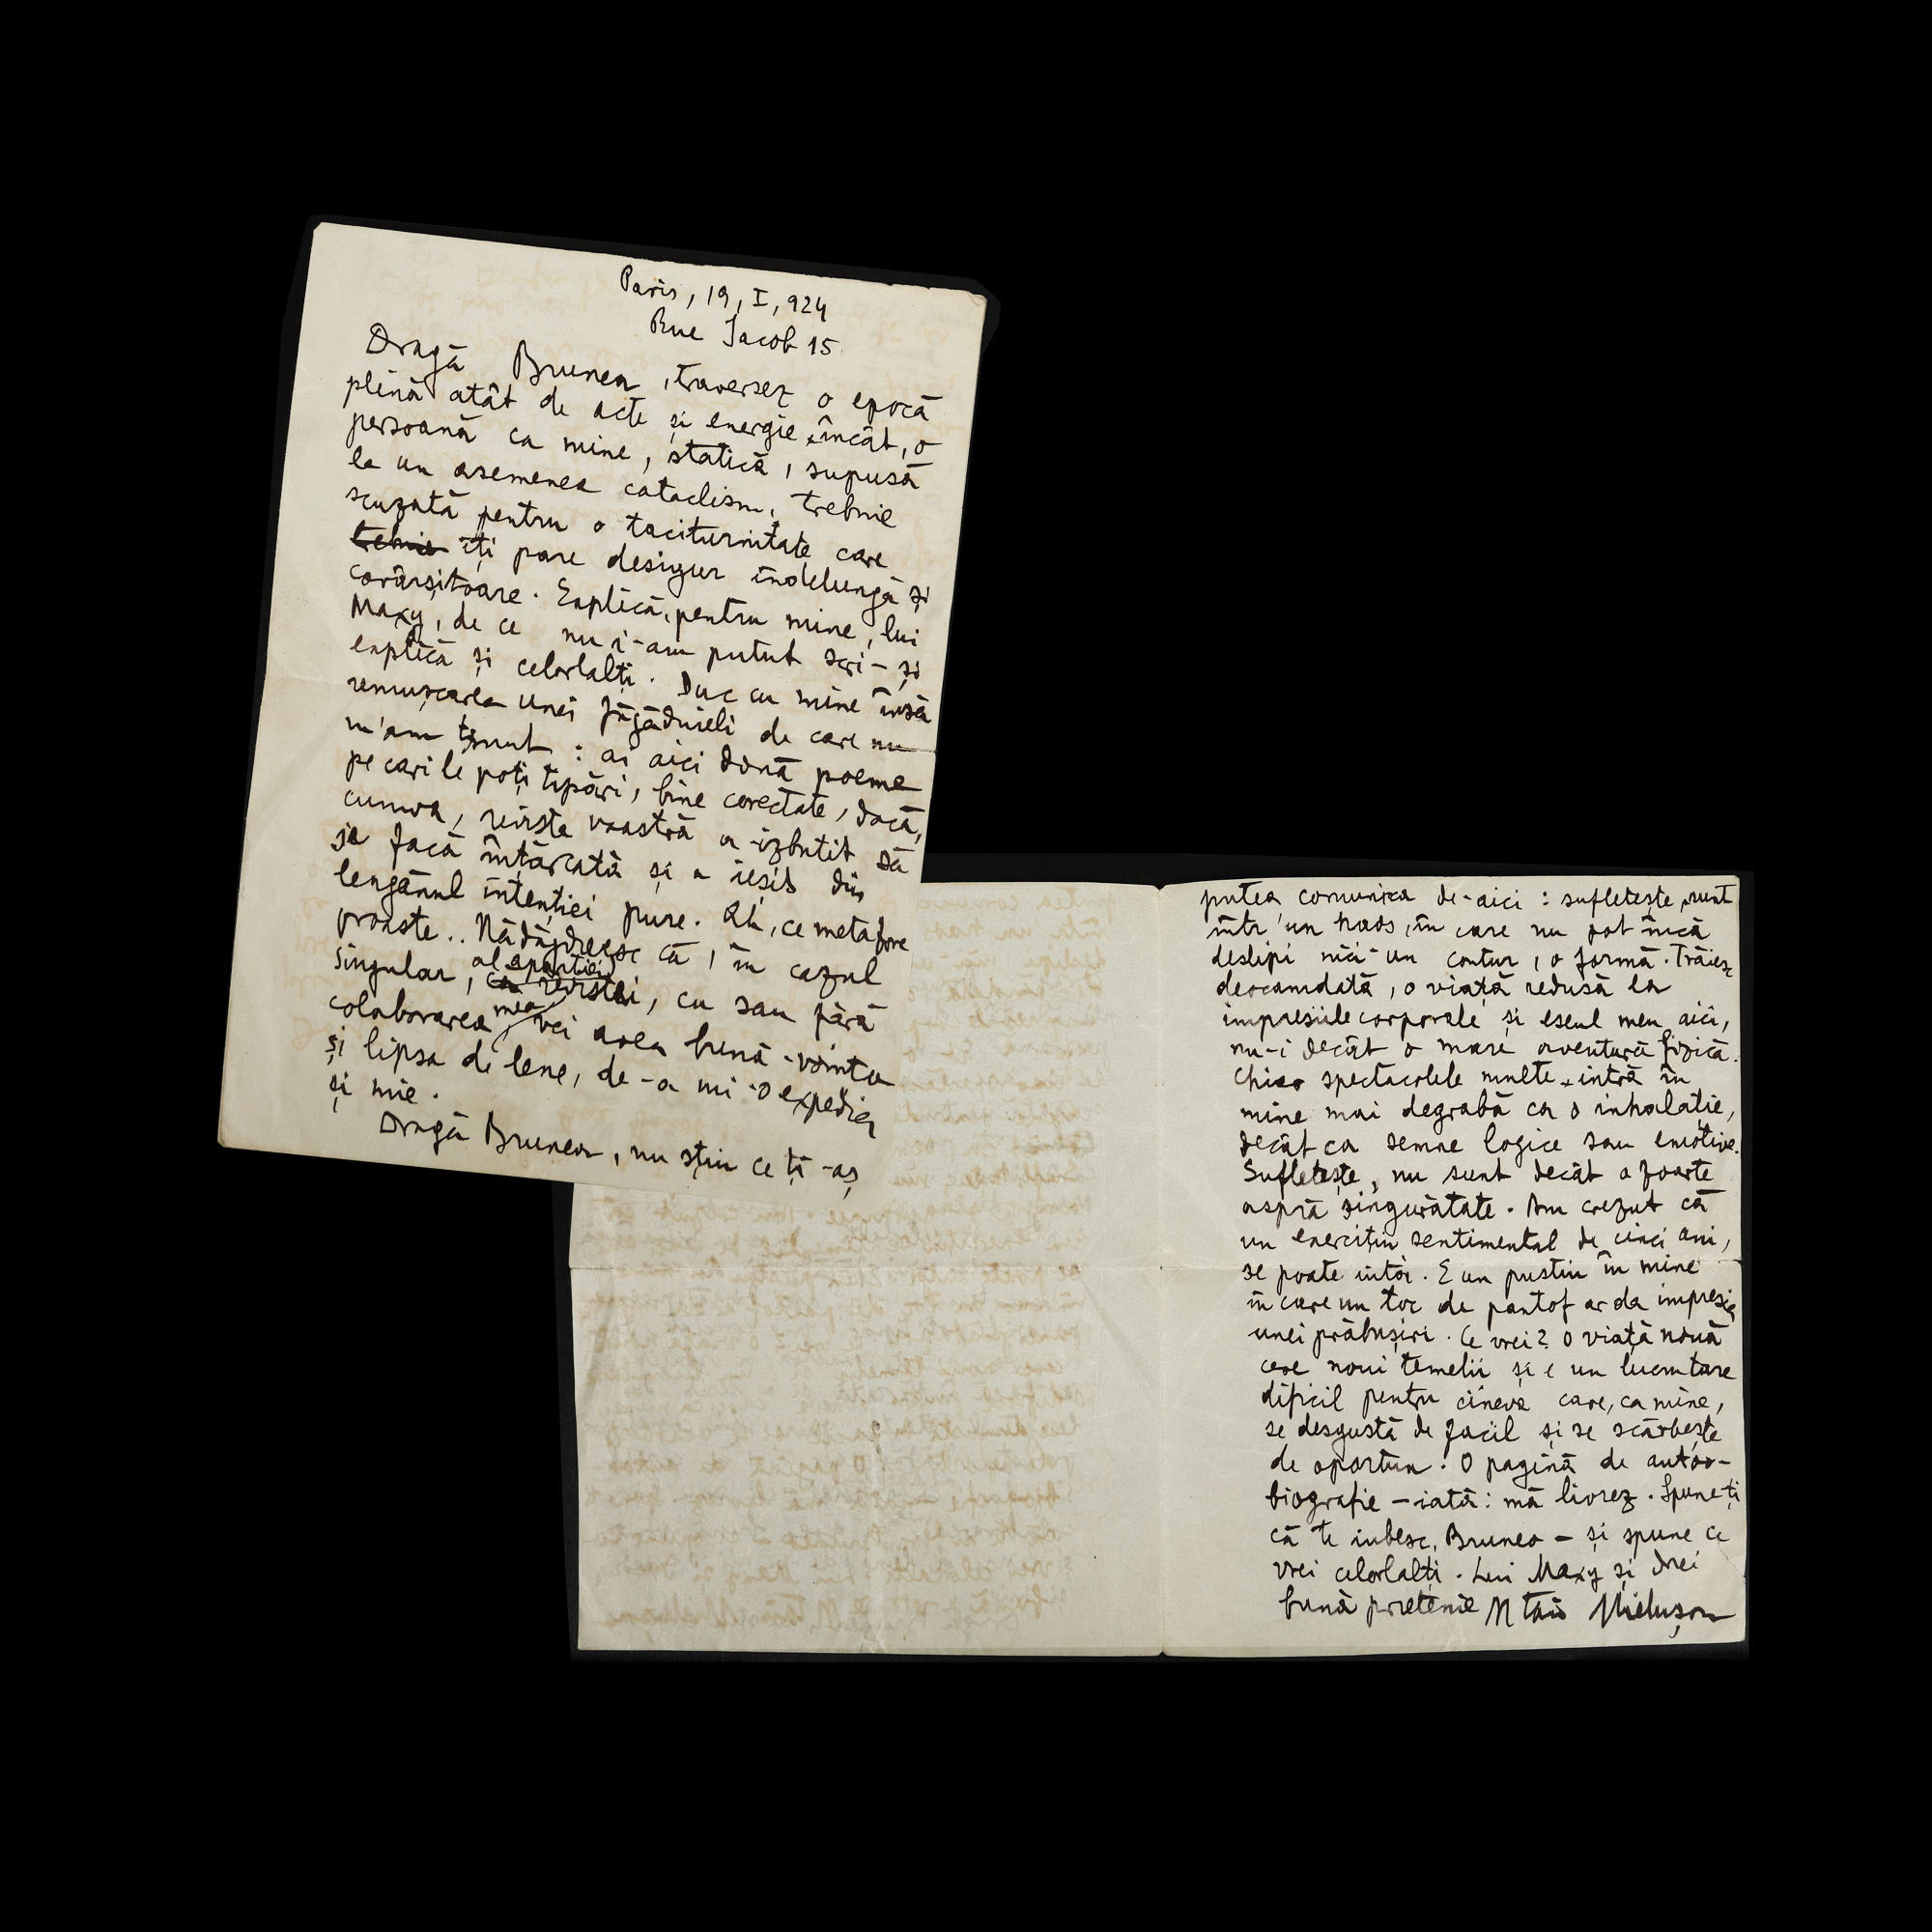 Paris, 19, I, 924
Rue Jacob 15.
Dragă Brunea, traversez o epocă
plină atât de acte și energie, încât, o
persoană ca mine, statică, supusă
la un asemenea cataclism, trebuie
scuzată pentru o taciturnitate care
îți pare desigur îndelungă și
covârșitoare. Explică, pentru mine, lui
Maxy, de ce nu i-am putut scri - și
explică și celorlalți. Duc cu mine însă
remușcarea unei făgăduieli de care nu
m'am ținut : ai aici două poeme
pe cari le poți tipări, bine corectate, dacă,
cumva, revista voastră a izbutit să
se facă întărcată și a ieșit din
leagănul intenției pure. Ah, ce metafore
proaste.. Nădăjduesc că, în cazul
singular, al apariției revistei, cu sau fără
colaborarea mea, vei avea bună-vointa
și lipsa de lene, de-a mi-o expedia
și mie.
Dragă Brunea, nu știu ce ți-aș
putea comunica de-aici : sufletește, sunt
într'un haos, în care nu pot încă
deslipi nici-un contur, o formă. Trăiesc
deocamdată, o viață redusă la
impresiile corporale și eseul meu aici,
nu-i decât o mare aventură fizică.
Chiar spectacolele multe, intră în
mine mai degrabă ca o inhalație,
decât ca semne logice sau emotive.
Sufletește, nu sunt decât o foarte
aspră singurătate. Am crezut că
un exercițiu sentimental de cinci ani,
se poate uita. E un pustiu în mine
în care un toc de pantof ar da impresia
unei prăbușiri. Ce vrei? O viață nouă
cere noui temelii și e un lucru tare
dificil pentru cineva care, ca mine,
se desgustă de facil și se scârbește
de oportun. O pagină de auto-
biografie - iată : mă livrez. Spune-ți
că te iubesc, Brunea - și spune ce
vrei celorlalți. Lui Maxy și Drei
bună prietenie